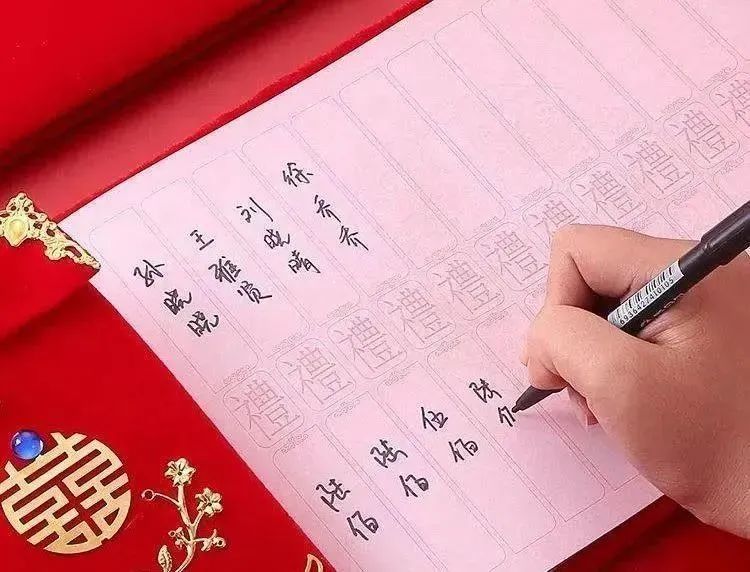 孙晓晓
王雅贤
刘晓晴
徐乔乔
禮 禮 禮 禮 禮 禮 禮 禮 禮 禮 禮
陆佰
陆佰
伍佰
陆
6936427410105
囍